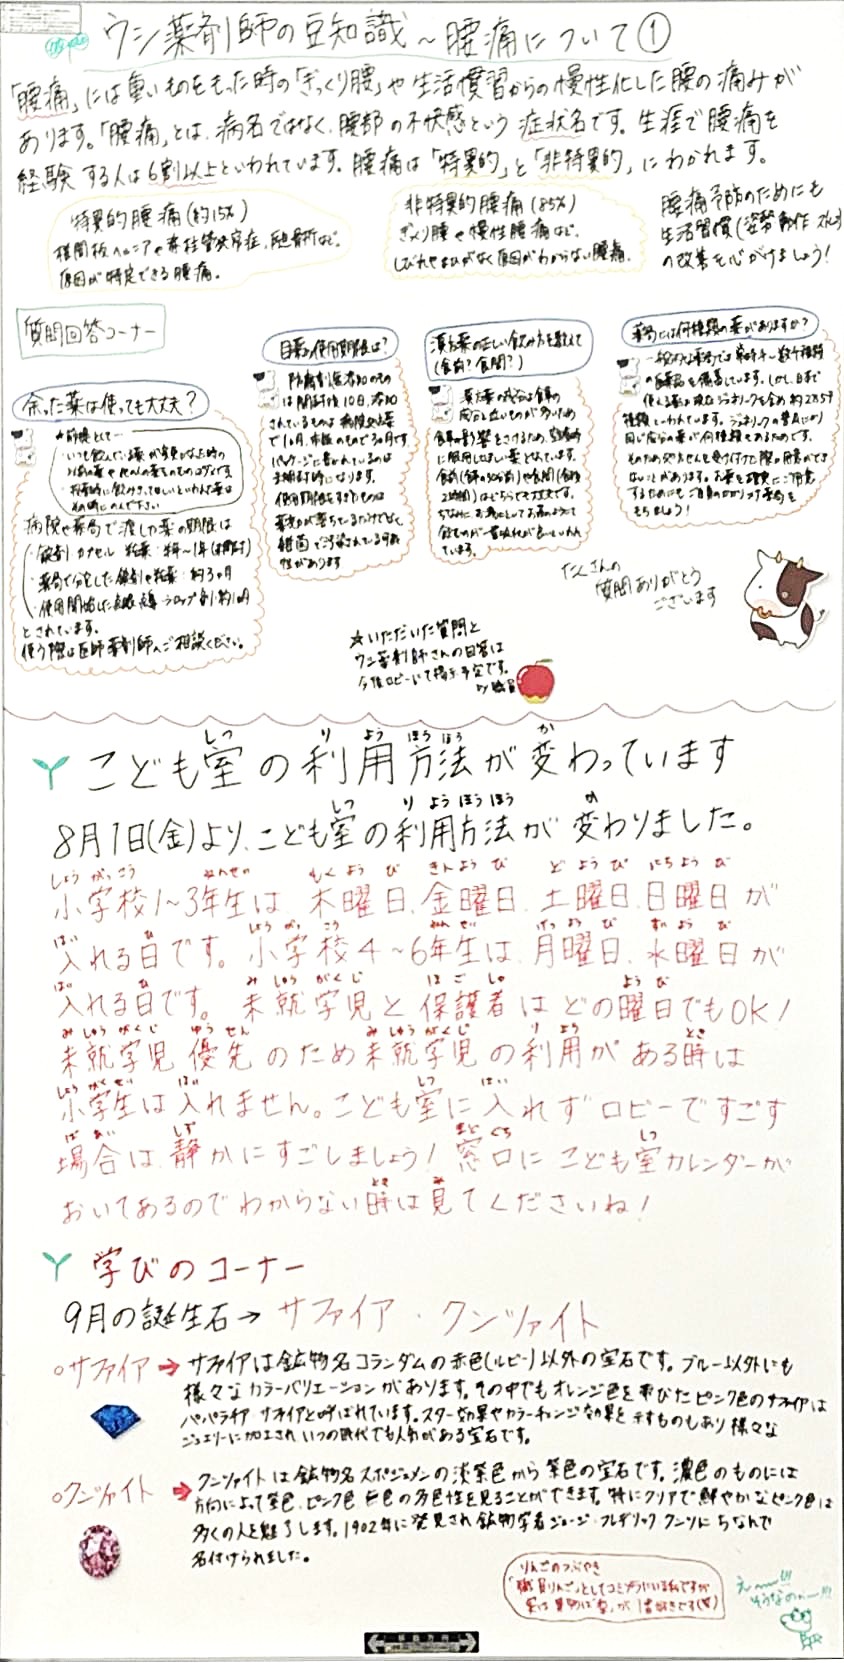 ウシ薬剤師の豆知識～腰痛について①
「腰痛」には重いものをもった時の「ぎっくり腰」や生活慣習からの慢性化した腰の痛みが
あります。「腰痛」とは、病名ではなく、腰部の不快感という症状名です。生涯で腰痛を
経験する人は6割以上といわれています。腰痛は「特異的」と「非特異的」にわかれます。
特異的腰痛(約15%)
椎間板ヘルニアや脊柱管狭窄症、圧迫骨折など、
原因が特定できる腰痛。
非特異的腰痛(85%)
ぎっくり腰や慢性腰痛など、
しびれやまひがなく原因がわからない腰痛
腰痛予防のためにも
生活習慣(姿勢 動作 ストレス)
の改善を心がけましょう!
質問回答コーナー
余った薬は使っても大丈夫?
★前提として…
病院や薬局で渡した薬の期限は
・錠剤 カプセル 粉薬:半年～1年(未開封)
とされています。
使う際は医師薬剤師へご相談ください。
目薬の使用期限は?
防腐剤無添加のもの
は開封後10日、添加
されているものは病院の目薬
で1ヵ月、市販のもので3ヵ月です。
パッケージに書かれているのは
未開封時になります。
使用期限をすぎたものは
薬効が落ちているだけでなく、
雑菌で汚染されている可能
性があります
漢方薬の正しい飲み方を教えて
(食前?食間?)
漢方薬の成分は食事の
成分と近いものが多いため
食事の影響をさけるため、空腹時
に服用しましょう
食前(食事の30分前)や食間(食後
2時間)はどちらでも大丈夫です。
薬局には何種類の薬がありますか?
一般的な薬局では 数千種類
の医薬品を備蓄しています。しかし、日本で
使える薬は現在ジェネリックを含め、約2万
種類といわれています。ジェネリックの普及により
同じ成分の薬が何種類もあるためです。
そのため処方せんを受け付けた際に用意ができ
ないことがあります。お薬を確実にご用意
するためにもご自身のかかりつけ薬局を
もちましょう!
たくさんの
質問ありがとう
ございます
★いただいた質問と
ウシ薬剤師さんの回答は
今後ロビーにて掲示予定です。
by職員
こども室の利用方法が変わっています
しつ りようほうほう か
8月1日(金)より、こども室の利用方法が変わりました。
しつ りようほうほう か
小学校1～3年生は 木曜日、金曜日、土曜日、日曜日が
しょうがっこう ねんせい もくようび きんようび どようび にちようび
入れる日です。小学校4～6年生は、月曜日、水曜日が
はい ひ しょうがっこう ねんせい げつようび すいようび
入れる日です。未就学児と保護者はどの曜日でもOK!
はい ひ みしゅうがくじ ほごしゃ ようび
未就学児優先のため未就学児の利用がある時は
みしゅうがくじ ゆうせん みしゅうがくじ りよう とき
小学生は入れません。こども室に入れずロビーですごす
しょうがくせい はい しつ はい
場合は、静かにすごしましょう!窓口にこども室カレンダーが
ばあい しず まどぐち しつ
おいてあるのでわからない時は見てくださいね!
とき み
学びのコーナー
9月の誕生石→サファイア・クンツァイト
○サファイア→サファイアは鉱物名コランダムの赤色(ルビー)以外の宝石です。ブルー以外にも
様々なカラーバリエーションがあります。その中でもオレンジ色を帯びたピンク色のサファイアは
パパラチア サファイアと呼ばれています。スター効果やカラーチェンジ効果を示すものもあり様々な
ジュエリーに加工され、いつの時代でも人気がある宝石です。
○クンツァイト→クンツァイトは鉱物名スポジュメンの淡紫色から紫色の宝石です。濃色のものには
方向によって紫色、ピンク色、無色の多色性を見ることができます。特にクリアで鮮やかなピンク色は
多くの人を魅了します。1902年に発見され鉱物学者ジョージ・フレデリック・クンツにちなんで
名付けられました。
りんごのつぶやき
「職員りんご」としてコミプラにいる私ですが
実は果物は「梨」が1番好きです(♥)
え～!!!
そうなのぉー!!!